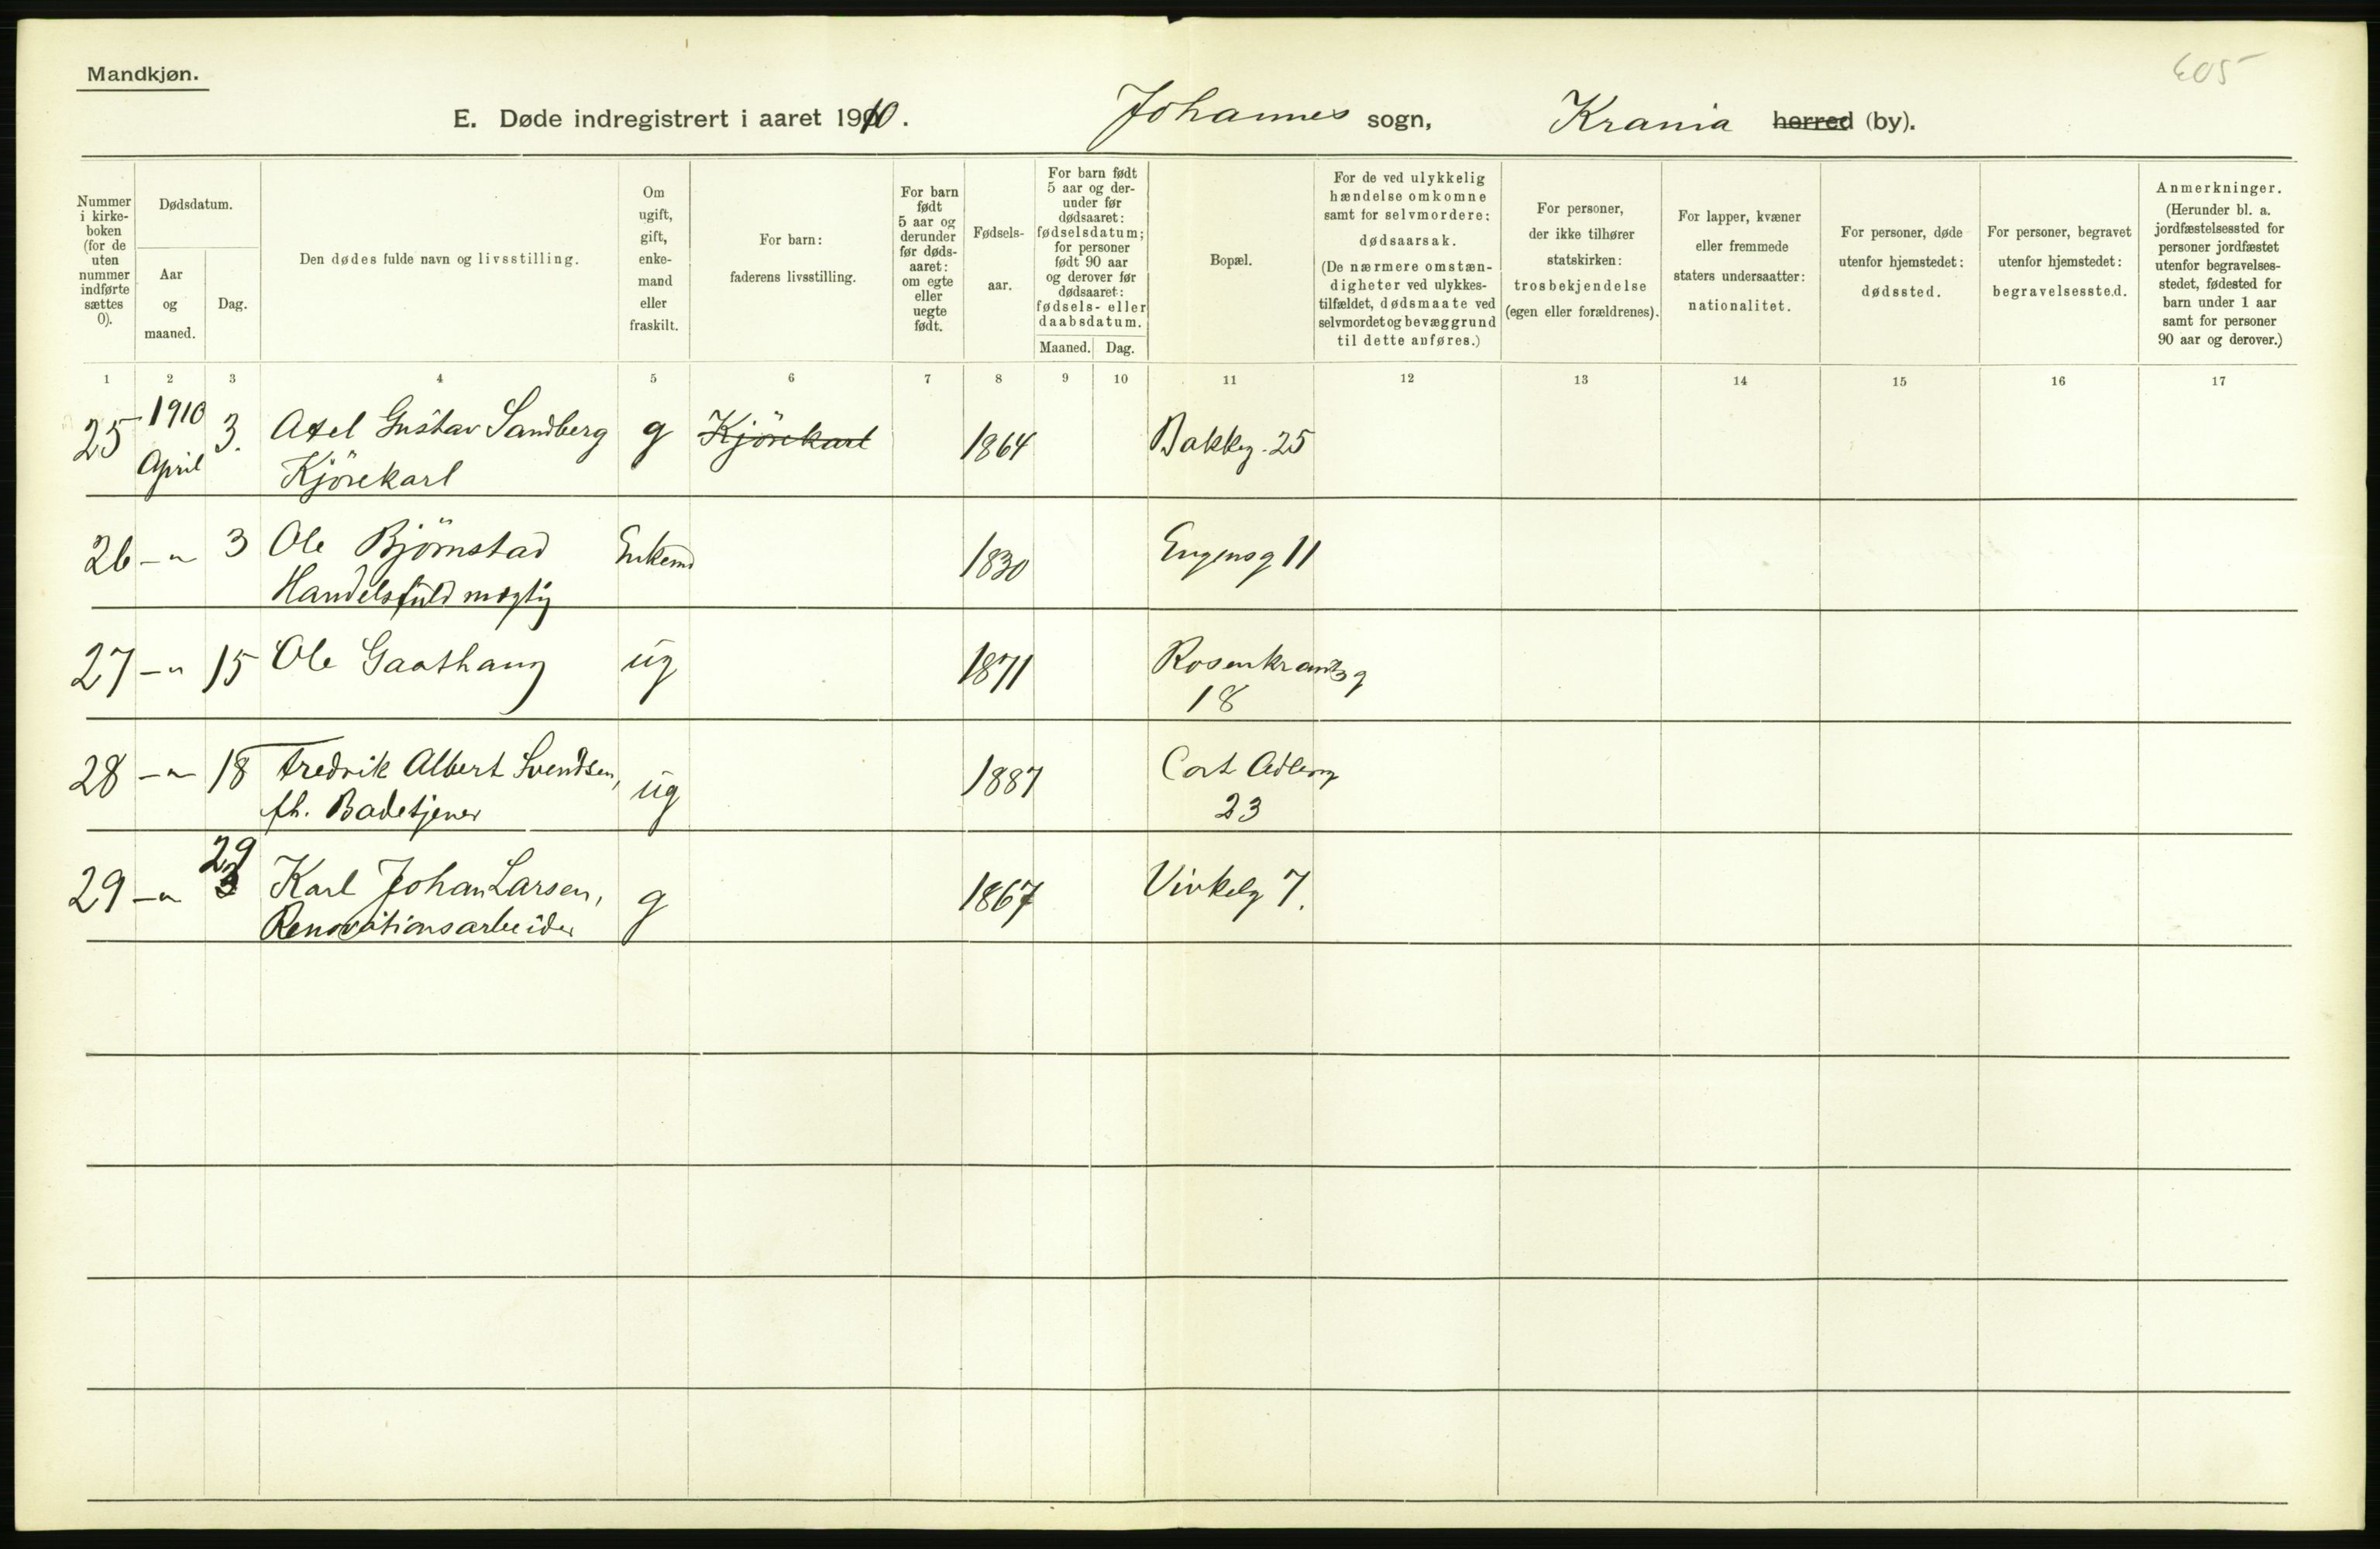 Mandkjøn.
605
E. Døde indregistrert i aaret 1910. Johannes sogn, Krania herred (by).
Nummer i kirkeboken (for de uten nummer indførte sættes 0).
Dødsdatum.
Aar og maaned.
Dag.
Den dødes fulde navn og livsstilling.
Om ugift, gift, enkemand eller fraskilt.
For barn: faderens livsstilling.
For barn født 5 aar og derunder før dødsaaret: om egte eller uegte født.
Fødselsaar.
For barn født 5 aar og derunder før dødsaaret: fødselsdatum; for personer født 90 aar og derover før dødsaaret: fødsels- eller daabsdatum.
Maaned. Dag.
Bopæl.
For de ved ulykkelig hændelse omkomne samt for selvmordere: dødsaarsak. (De nærmere omstændigheter ved ulykkestilfældet, dødsmaate ved selvmordet og bevæggrund til dette anføres.)
For personer, der ikke tilhører statskirken: trosbekjendelse (egen eller forældrenes).
For lapper, kvæner eller fremmede staters undersaatter: nationalitet.
For personer, døde utenfor hjemstedet: dødssted.
For personer, begravet utenfor hjemstedet: begravelsessted.
Anmerkninger. (Herunder bl. a. jordfæstelsessted for personer jordfæstet utenfor begravelsesstedet, fødested for barn under 1 aar samt for personer 90 aar og derover.)
1 2 3 4 5 6 7 8 9 10 11 12 13 14 15 16 17
25 1910 April 3. Axel Gustav Sandberg g Kjörekarl 1864 Bakkeg. 25
Kjörekarl
26 -"- 3 Ole Björnstad Enkemd 1830 Eugensg 11
Handelsfuldmægtig
27 -"- 15 Ole Gaathaug ug 1871 Rosenkrantzg
18
28 -"- 18 Fredrik Albert Svendsen, ug 1887 Cort Adlerg
fh. Badetjener 23
29 -"- 29 Karl Johan Larsen, g 1867 Vinkelg 7.
Renovationsarbeider